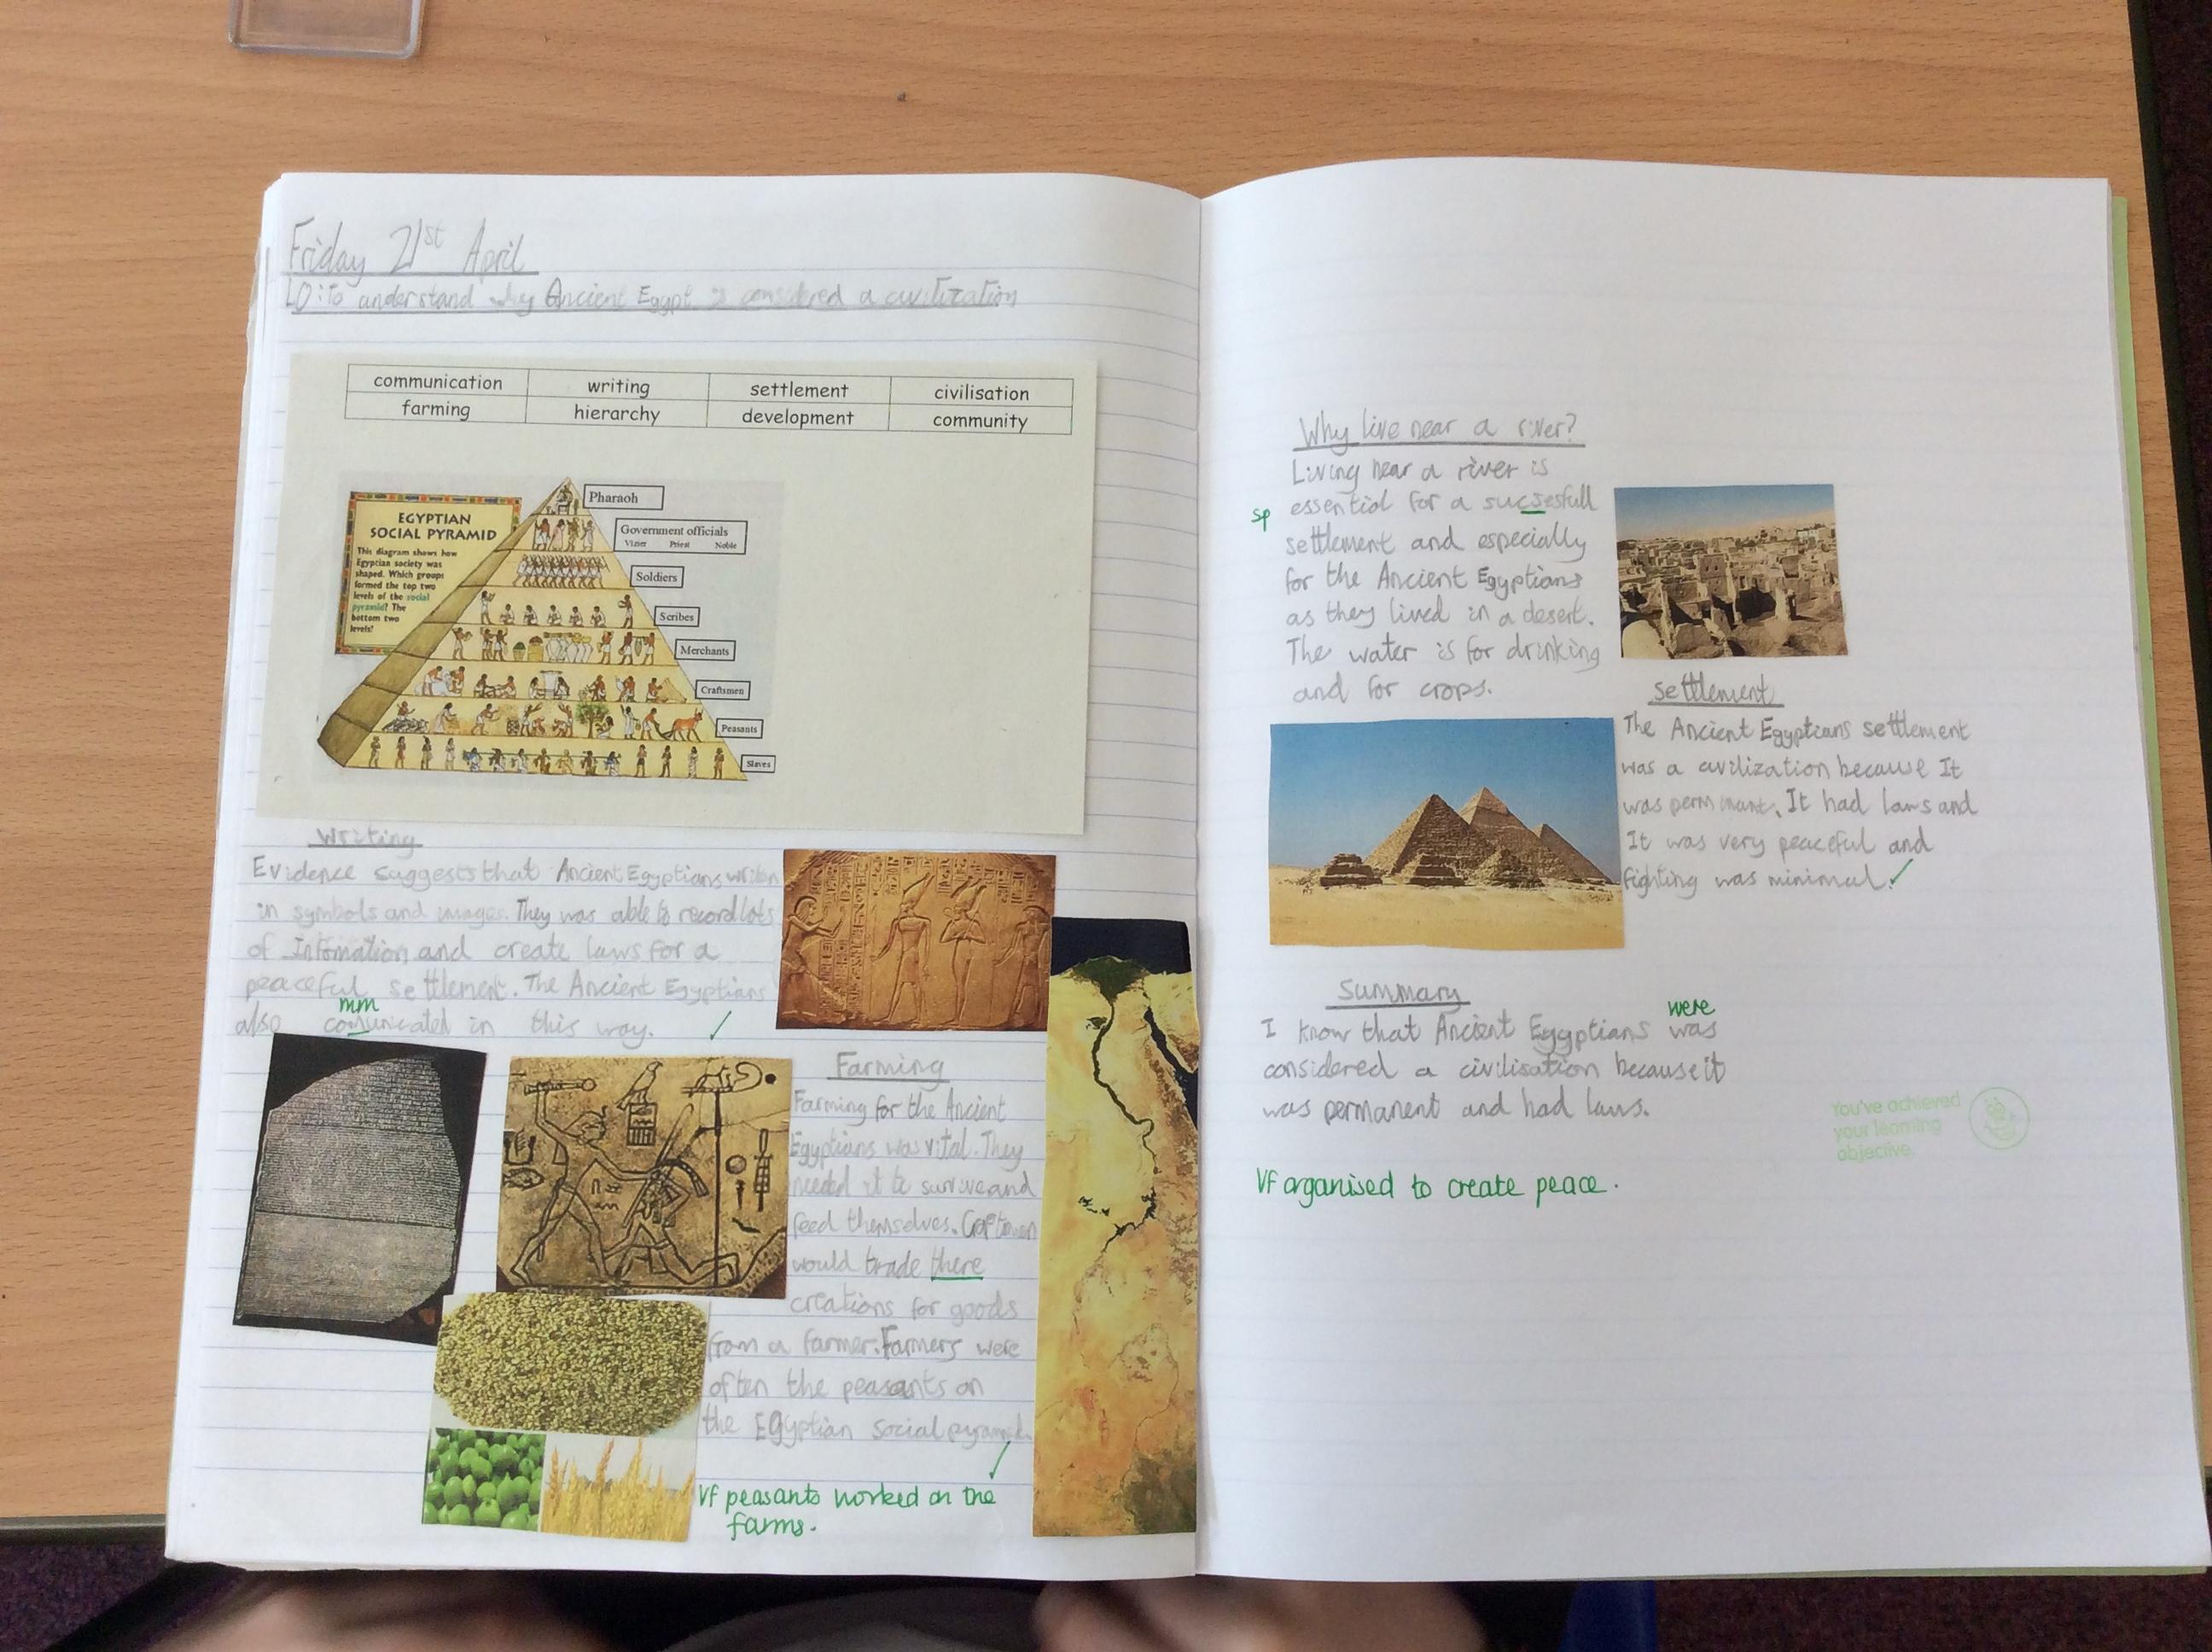 Friday 21st April
LO: To understand why Ancient Egypt is considered a civilization
communication writing settlement civilisation
farming hierarchy development community
EGYPTIAN
SOCIAL PYRAMID
This diagram shows how
Egyptian society was
shaped. Which groups
formed the top two
levels of the social
pyramid? The
bottom two
levels?
Pharaoh
Government officials
Vizier Priest Noble
Soldiers
Scribes
Merchants
Craftsmen
Peasants
Slaves
Writing
Evidence suggests that Ancient Egyptians
in symbols and images. They was able to record lots
of Infomation and create laws for a
peaceful settlement. The Ancient Egyptians
mm
also comunicated in this way.
Farming
Farming for the Ancient
Egyptians was vital. They
needed it to survive and
feed themselves.
would trade there
creations for goods
from a farmer. Farmers were
often the peasants on
the Egyptian social pyramid.
Vf peasants worked on the
farms.
Why live near a river?
Living near a river is
sp essential for a sucsesfull
settlement and especially
for the Ancient Egyptians
as they lived in a desert.
The water is for drinking
and for crops.
settlement
The Ancient Egyptians settlement
was a civilization because It
was It had laws and
It was very peaceful and
fighting was minimal.
Summary
were
I know that Ancient Egyptians was
considered a civilisation because it
was permanent and had laws.
You've achieved
your learning
objective.
Vf organised to create peace.